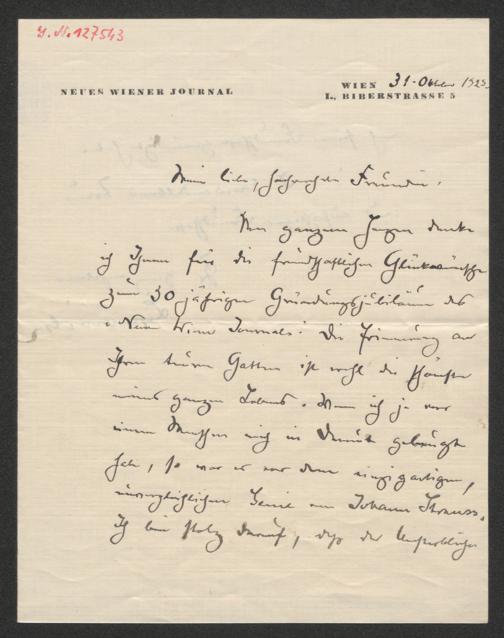 J. N. 127543
NEUES WIENER JOURNAL
WIEN 31. Oktober 1923
I., BIBERSTRASSE 5
Meine liebe, hochverehrte Freundin.
Von ganzem Herzen danke
ich Ihnen für die freundschaftlichen Glückwünsche
zum 30 jährigen Gründungsjubiläum des
"Neuen Wiener Journals". Die Erinnerung an
Ihren teuren Gatten ist wohl die schönste
meines ganzen Lebens. Wenn ich je vor
einem Menschen mich in Demut gebeugt
habe, so war es vor dem einzigartigen,
unvergleichlichen Genie von Johann Strauss.
Ich bin stolz darauf, daß der Unsterbliche